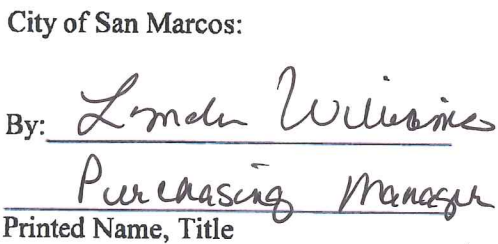 City of San Marcos:
By: Lynda Williams
Purchasing Manager
Printed Name, Title